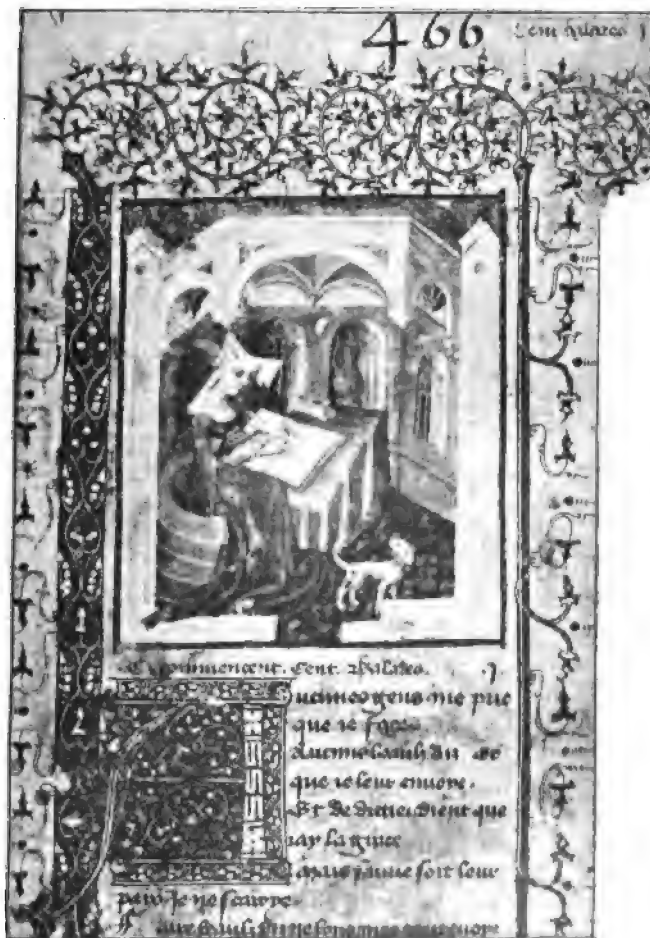 466 Cent balades j
Cy commencent. Cent. balades. j
1
ucunes gens me prie
que ie face
2
Aucuns beaulz diz et
que ie leur envoye.
Et de dittier dient que
iay la grace
Mais sauve soit leur
paix je ne
beaulz diz ne bons mes